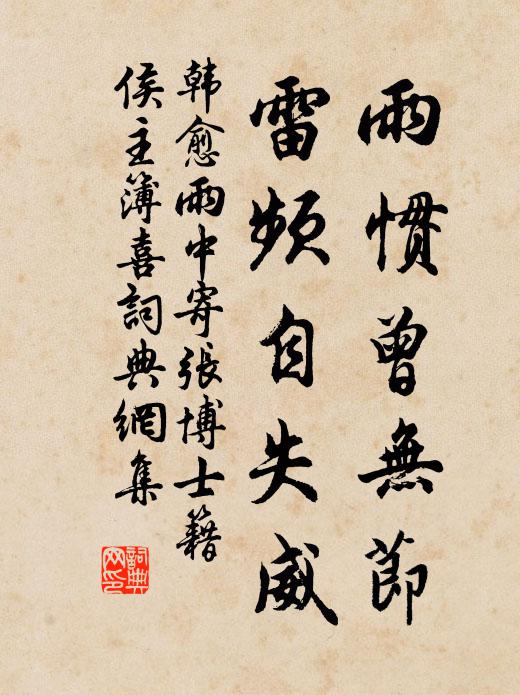 雨慣曾無節
雷頻自失威
韩愈雨中寄張博士籍
侯主簿喜詞典網集
詞典网印